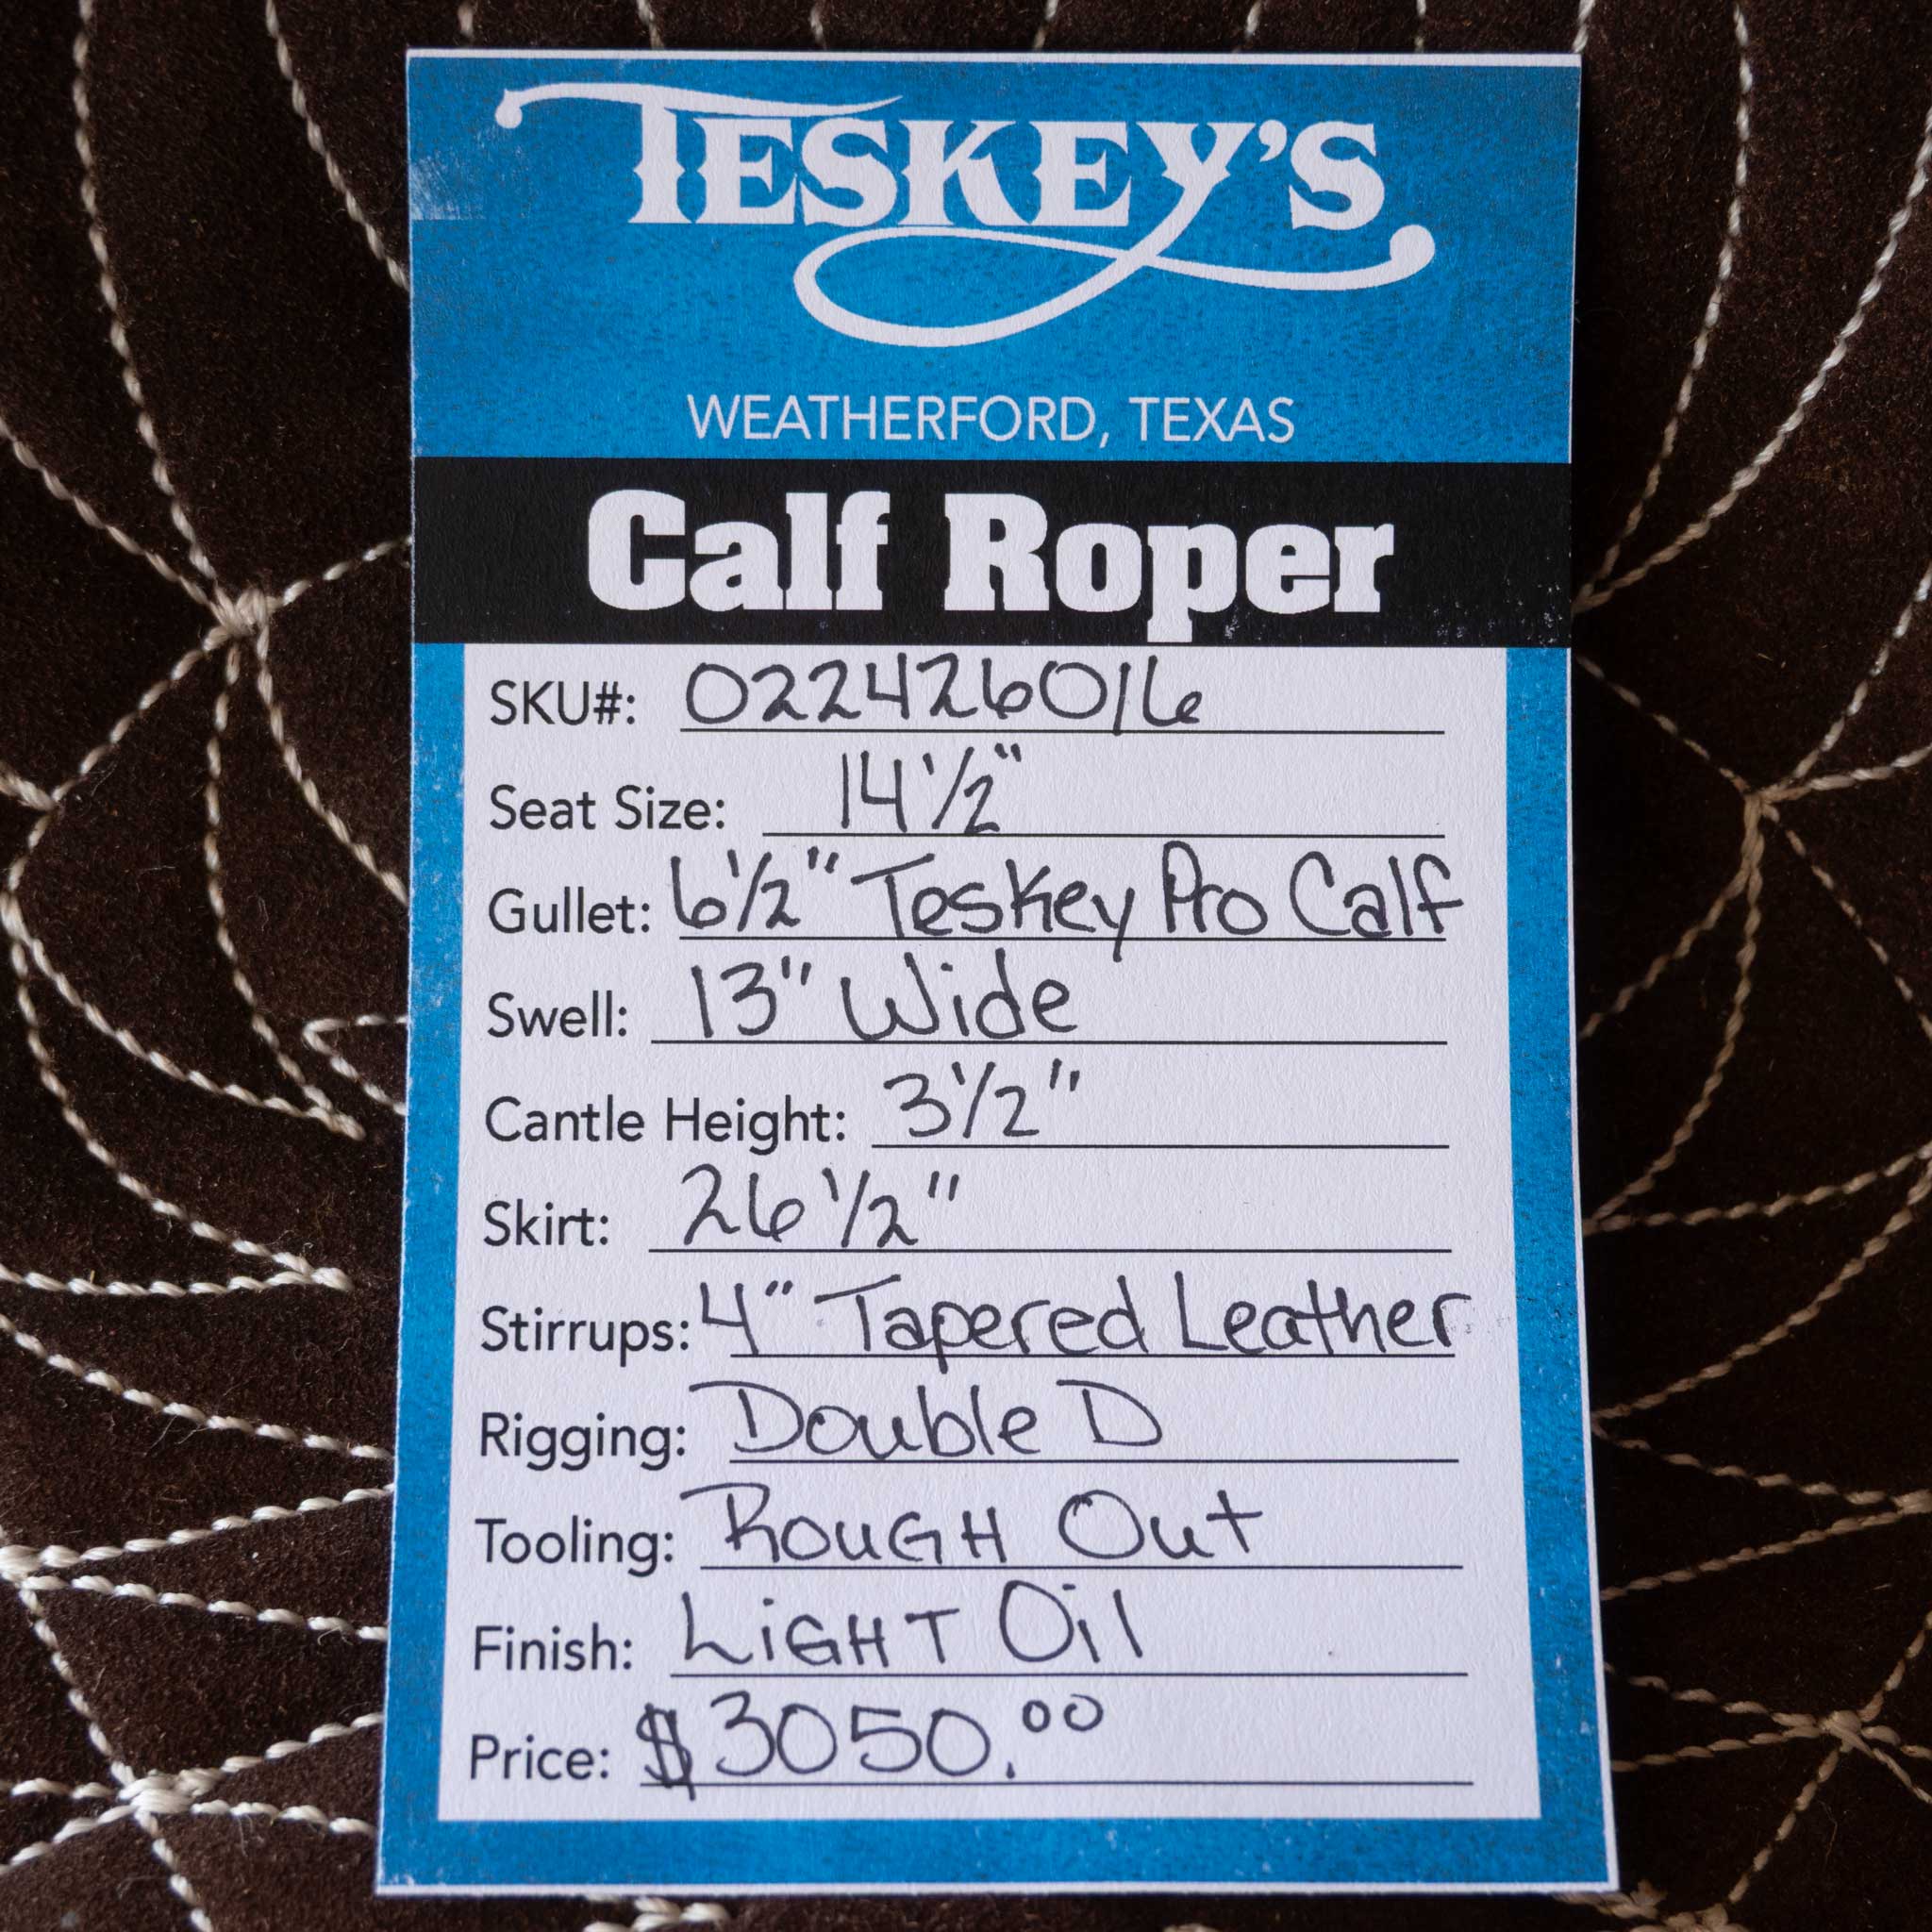 TESKEY'S
WEATHERFORD, TEXAS
Calf Roper
SKU#: 022426016
Seat Size: 14 1/2"
Gullet: 6 1/2" Teskey Pro Calf
Swell: 13" Wide
Cantle Height: 3 1/2"
Skirt: 26 1/2"
Stirrups: 4" Tapered Leather
Rigging: Double D
Tooling: ROUGH Out
Finish: LiGHT Oil
Price: $3050.00